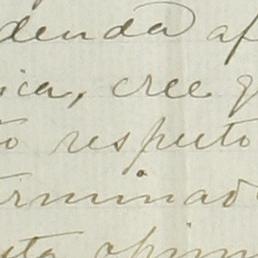 denda af
ica, cree q
to respecto
terminad
ita opini